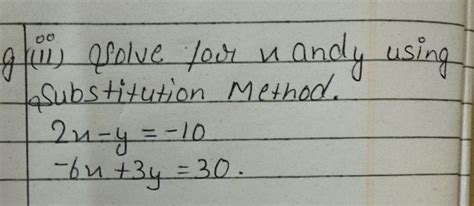 g (iii) Solve for x and y using
Substitution Method.
2x-y = -10
-6x+3y = 30.